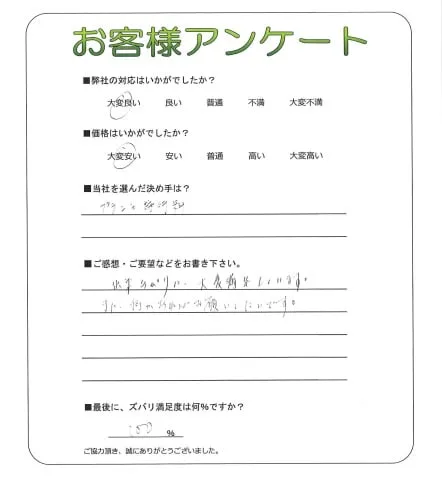 お客様アンケート
■弊社の対応はいかがでしたか？
大変良い 良い 普通 不満 大変不満
■価格はいかがでしたか？
大変安い 安い 普通 高い 大変高い
■当社を選んだ決め手は？
プランと
■ご感想・ご要望などをお書き下さい。
出来上がりに、大変満足しています。
また、何か有ればお願いしたいです。
■最後に、ズバリ満足度は何%ですか？
100 %
ご協力頂き、誠にありがとうございました。